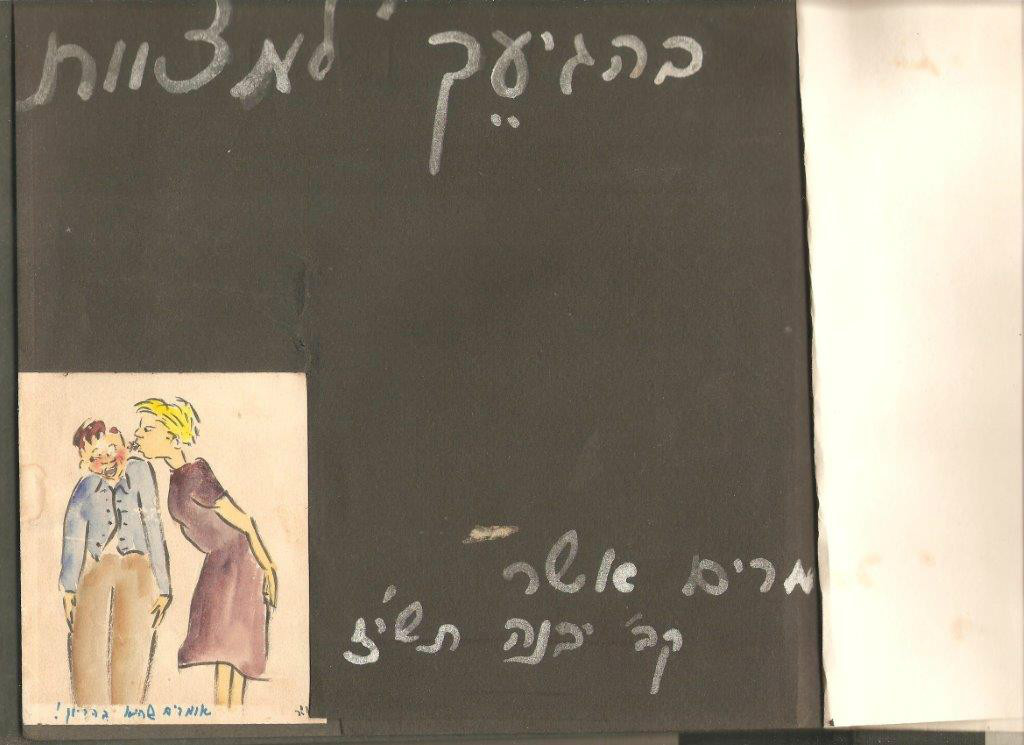 בהגיעֵך למצוות
מרים אשר
קב' יבנה תש'יז
אומרים שהוא בהריון !